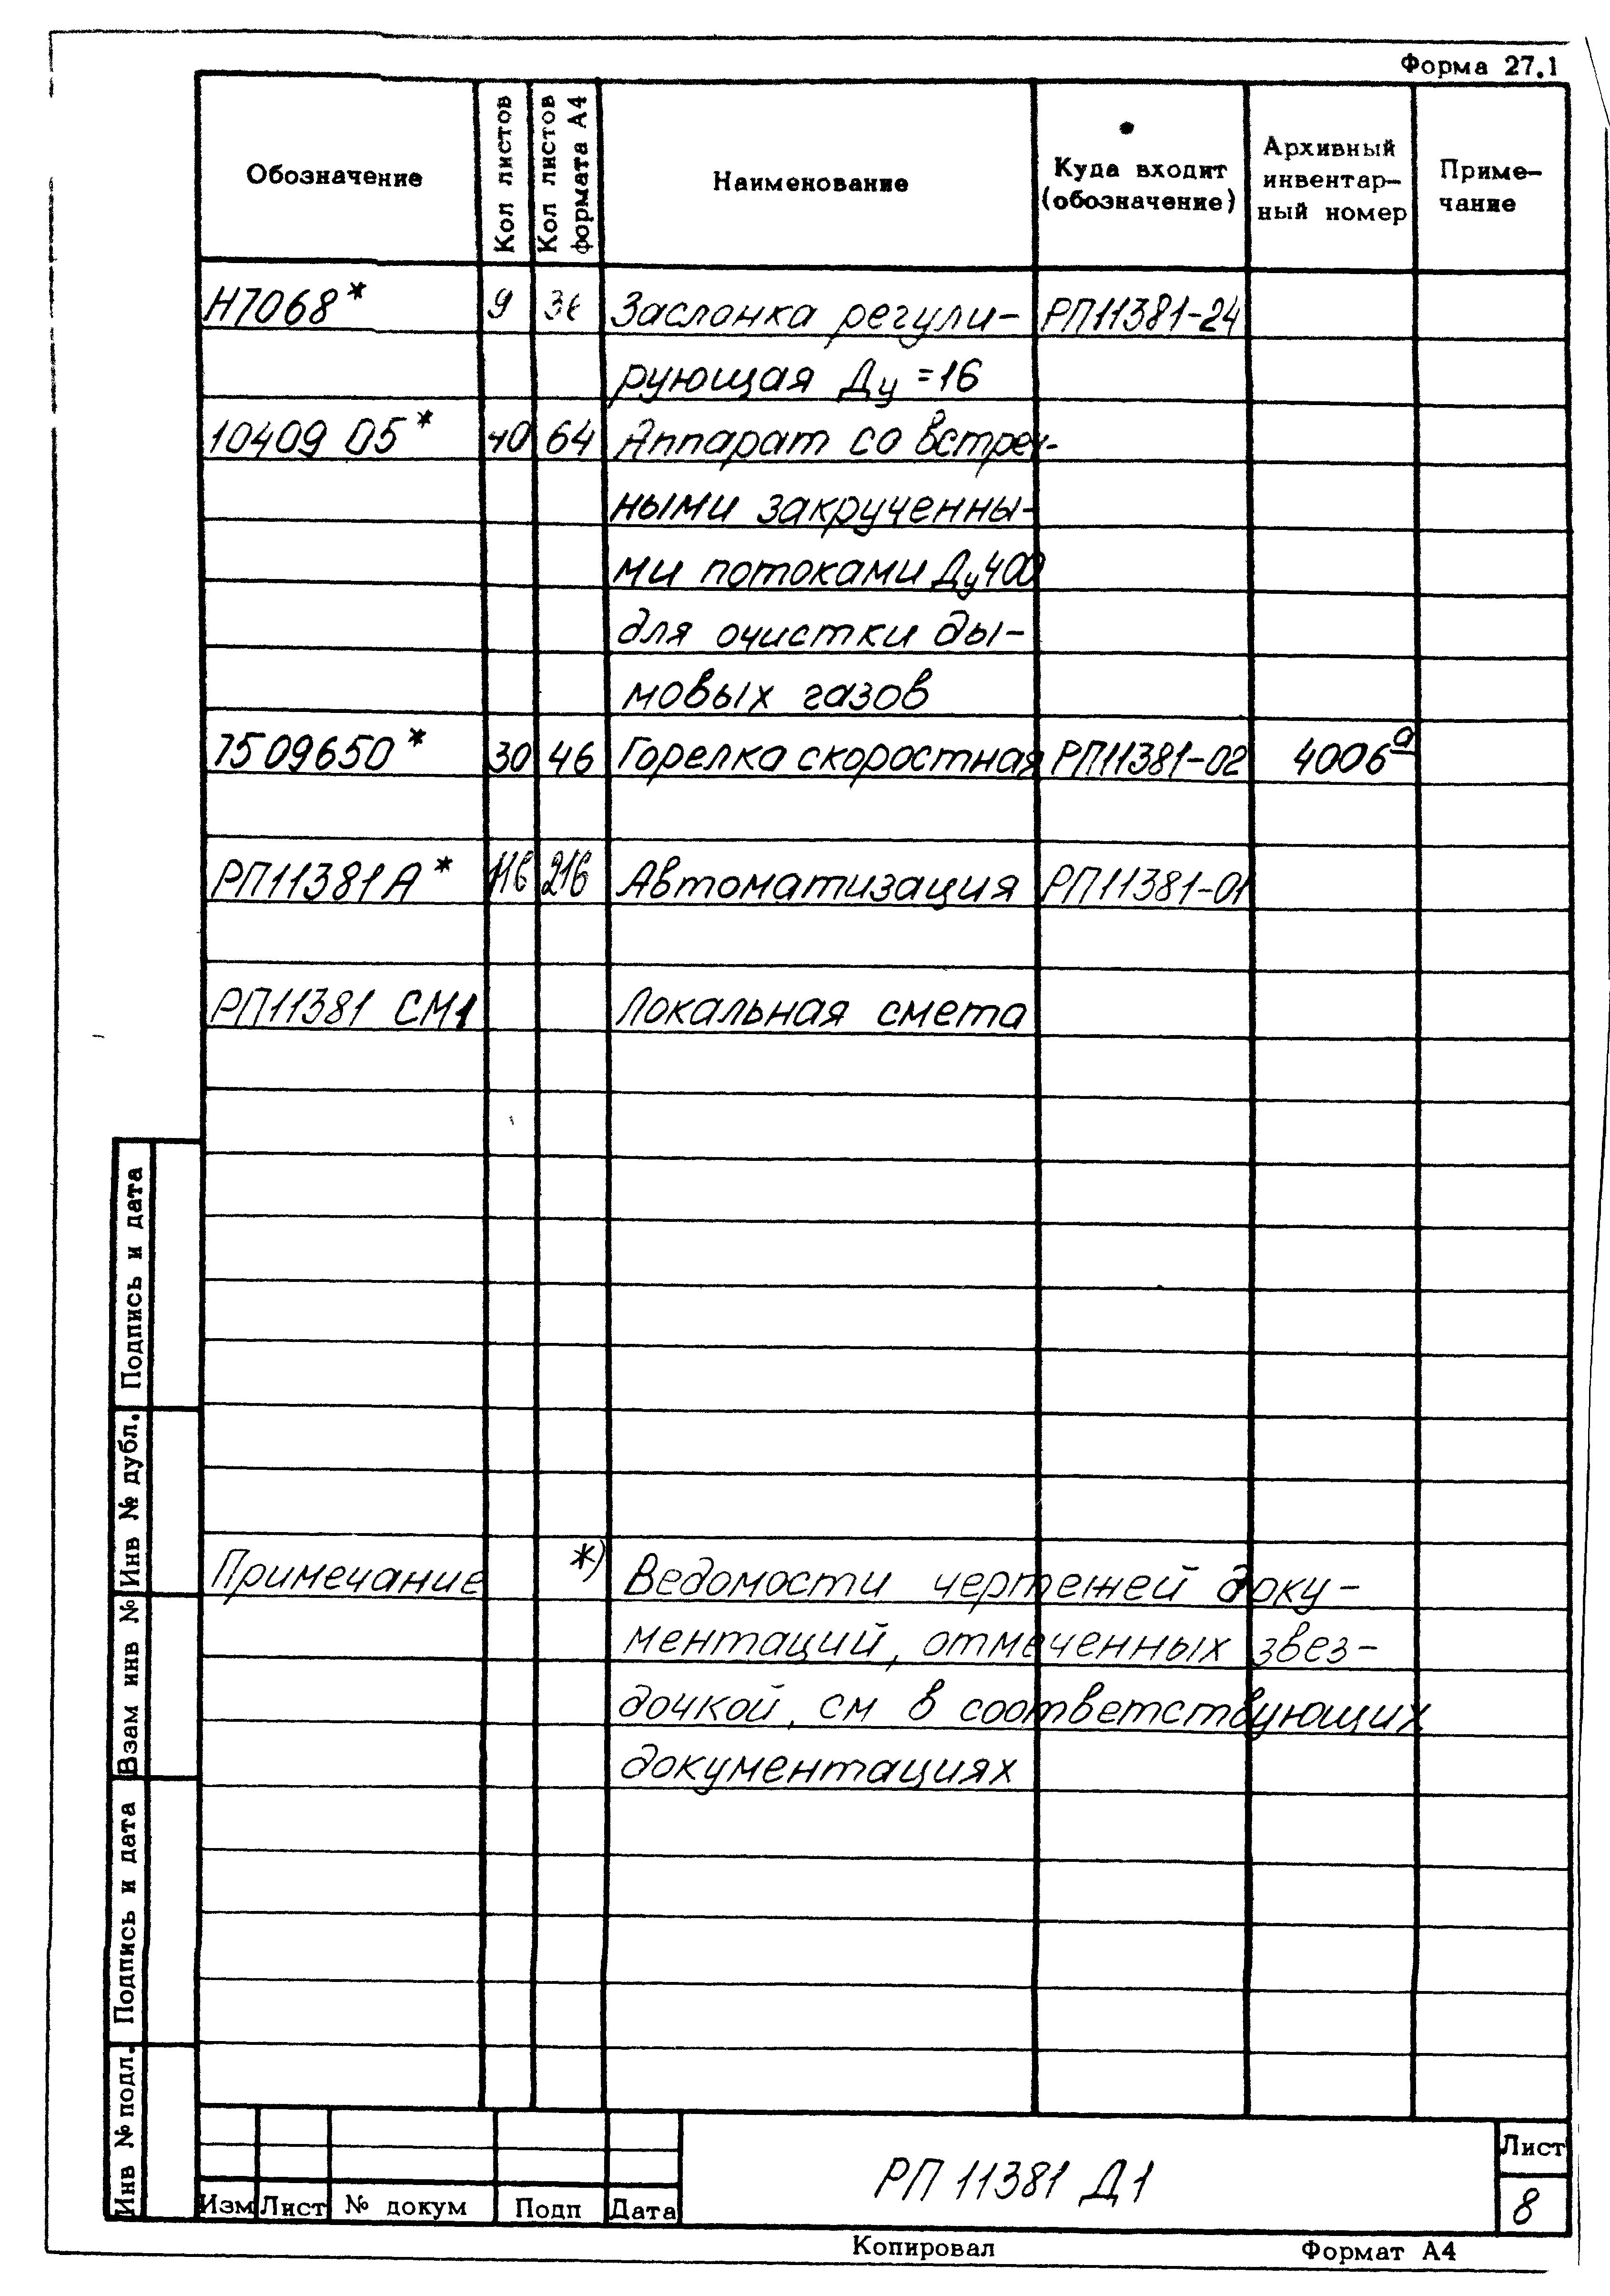 Форма 27.1
Обозначение
Кол листов
Кол листов
формата А4
Наименование
Куда входит
(обозначение)
Архивный
инвентар-
ный номер
Приме-
чание
Н7068* 9 Заслонка регули- РП11381-24
рующая Ду =16
10409 05* 40 64 Аппарат со встреч-
ными закрученны-
ми потоками Ду400
для очистки ды-
мовых газов
7509650* 30 46 Горелка скоростная РП11381-02 4006а
РП11381А* 116 216 Автоматизация РП11381-01
РП11381 СМ1 Локальная смета
Примечание *) Ведомости чертежей доку-
ментаций, отмеченных звез-
дочкой, см в соответствующих
документациях
Подпись и дата
Инв № дубл.
Взам инв №
Подпись и дата
Инв № подл.
Изм Лист № докум Подп Дата
РП 11381 Д1
Лист
8
Копировал Формат А4